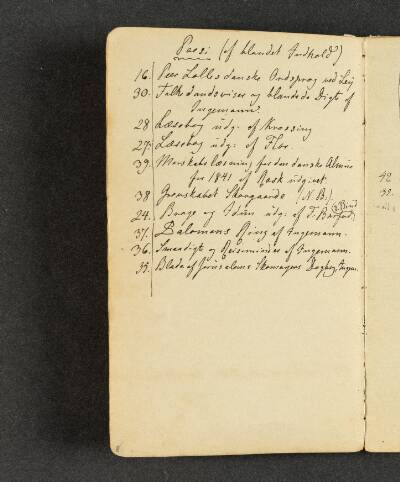 Poesi (af blandet Indhold)
16. Peer Lolles danske Ordsprog ved Leij
30. Folkedandsviser og blandede Digte af
Ingemann.
28 Læsebog udg. af Krossing
27. Læsebog udg: af Flor
39. Morskabslæsning for den danske Almue
for 1841 af Rask udgivet.
38 Grevskabet Skovgaarde (N. B.)
24. Brage og Idun udg. af F. Barfod 2 Bind
37. Salomons Ring af Ingemann.
36. Smaadigte og Reiseminder af Ingemann.
35. Blade af Jerusalems Skomagers Dagbog Ingem.
42
32.